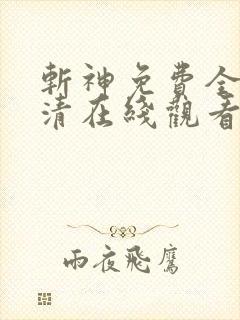 斬神免費全
清在綫觀看
雨夜飛鷹